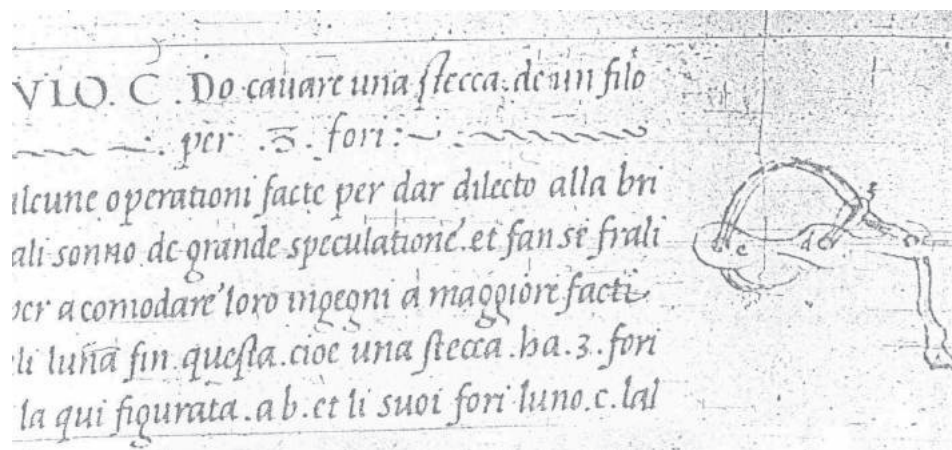 VLO. C. Do cauare una stecca. de un filo
per .3. fori:
alcune operationi facte per dar dilecto alla bri
ali sonno de grande speculatione. et fan se frali
per acomodare loro ingegni a maggiore facti
li luna fin questa. cioe una stecca. ha. 3. fori
la qui figurata. a b. et li suoi fori luno. c. lal
c d